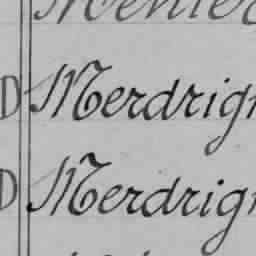 D Merdrign
D Merdrign